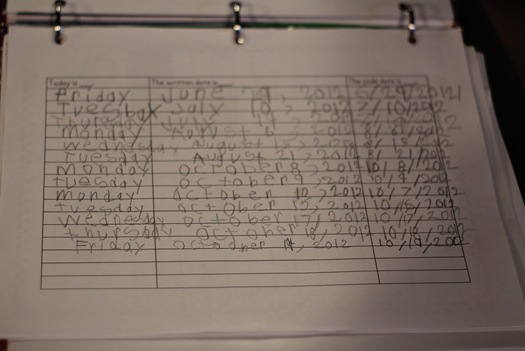 Today is The written date is The code date is
Friday June 29, 2012 6/29/2012
Tuesbay July 10, 2012 7/10/2012
Thursday July 2012
Monday August 6, 2012 8/6/2012
Wednesday August 15, 2012 8/15/2012
Tuesday August 21, 2012 8/21/2012
Monday october 8, 2012 10/8/2012
tuesday october 9, 2012 10/9/2012
monday october 2012
tuesday october 2012
Wednesday october 17, 2012 10/17/2012
thursday october 18, 2012 10/18/2012
Friday october 2012 10/19/2012